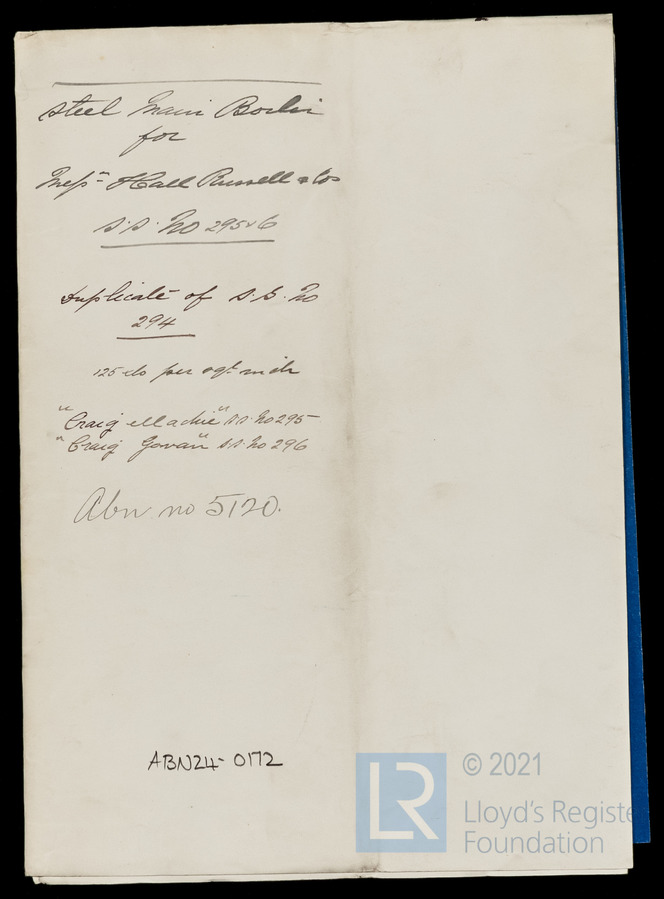 Steel Main Boiler
for
Mess<sup>rs</sup> Hall Russell & Cos
S.S. No 295 & 6
Duplicate of S.S. No
294
125 lbs per sq<sup>r</sup> inch
"Craig ellachie" S.S. No 295
"Craig Gowan" S.S. No 296
Abn no 5120.
ABN24-0172
LR
© 2021
Lloyd's Registe
Foundation